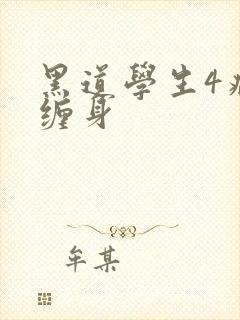 黑道學生4
缠身
牟某